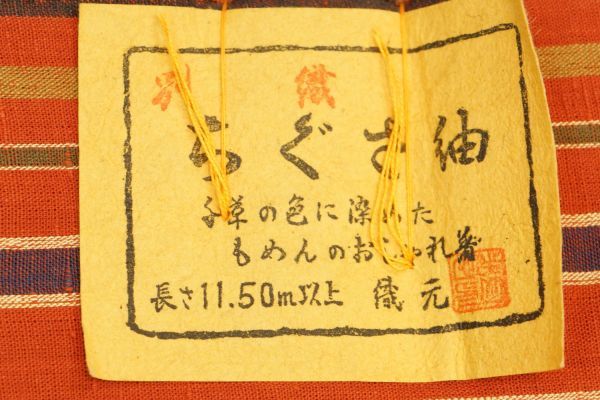 別織
ちぐさ紬
千草の色に染めた
もめんのおしゃれ着
長さ11.50m以上 織元